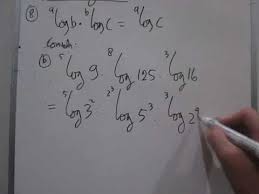 ⑧ ᵃlog b · ᵇlog c = ᵃlog c
Contoh:
ⓑ ⁵log 9 · ⁸log 125 · ³log 16
= ⁵log 3² · ^(2³)log 5³ · ³log 2⁴